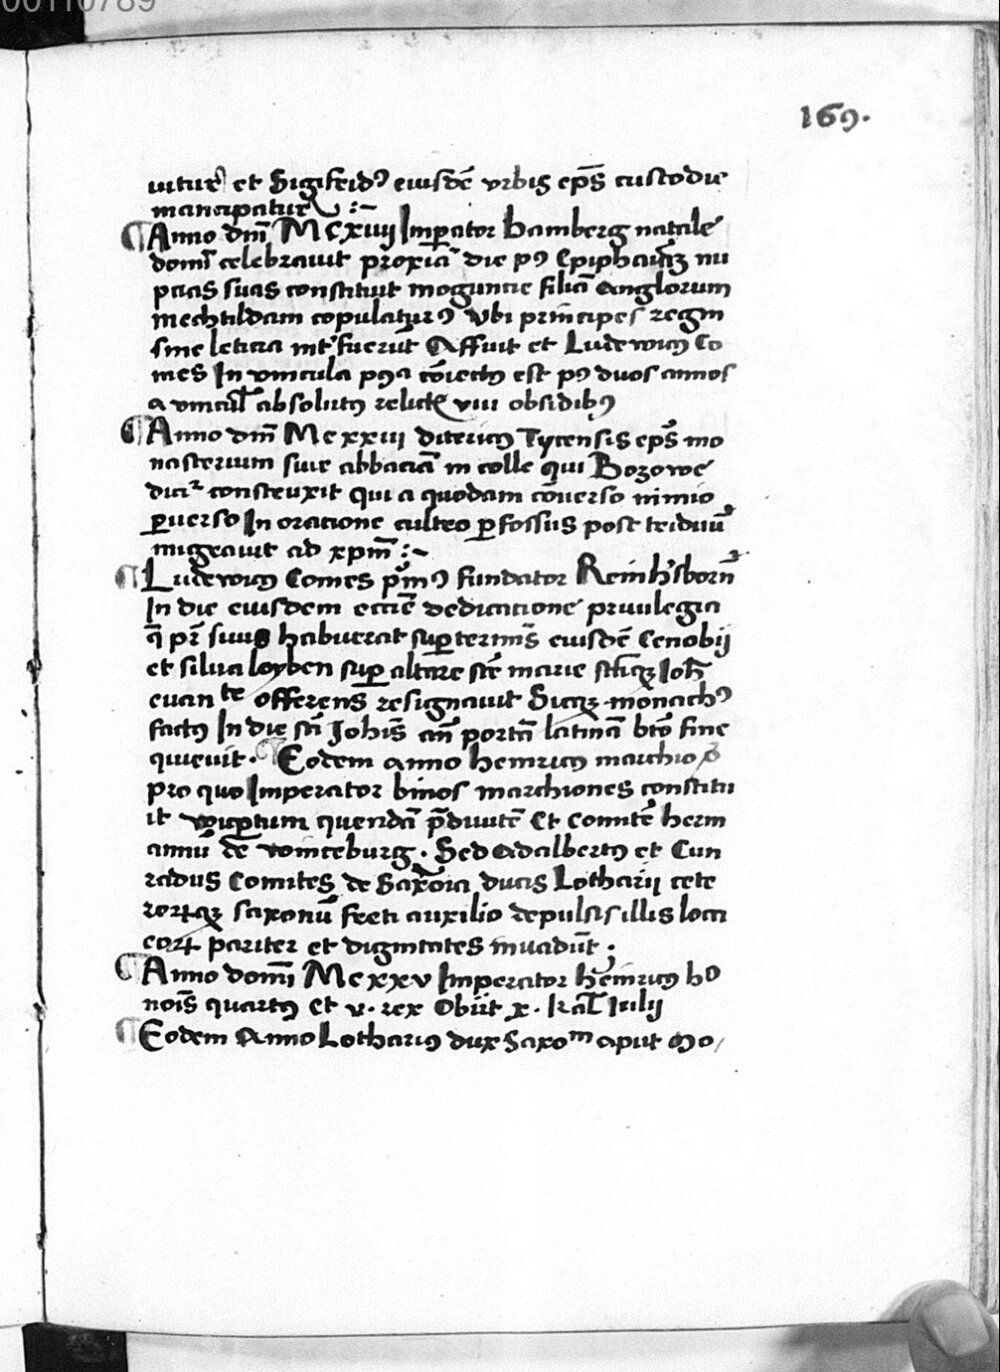 00110789
169.
uitur et Sigifrid⁹ eiusdē vrbis ep̄s custodie
mancipatur :~
¶ Anno dn̄i MCxiiij Imꝑator bamberg natale
domī celebrauit proxīa die p⁹ Epiphaniā nu
ptias suas constituit moguntie filiā Anglorum
mechtildam copulatur⁹ Vbi principes regni
sine leticia int' fuerūt Affuit et Ludewic⁹ Co
mes In vincula p⁹a cōiect⁹ est p⁹ duos annos
a vincul̄ absolut⁹ relict̄ viii obsidib⁹
¶ Anno dn̄i Mcxxiii diteric⁹ Tycensis ep̄s mo
nasterium siue abbaciā in colle qui Bozowe
dicit᷑ construxit qui a quodam cōuerso nimio
ꝑuerso In oratione cultro ꝑfossus post triduū
migrauit ad xp̄m :~
¶ Ludewic⁹ Comes p̄m⁹ fundator Reinh'sborn̄
In die eiusdem eccīe dedicatione priuilegia
q̄ pr̄ suus habuerat suꝑ termīs eiusdē Cenobij
et silua loyben suꝑ altare scē marie sc̄iqꝫ Joh̄
euan te offerens resignauit Sicqꝫ monach⁹
fact⁹ In die sc̄i Joh̄is an̄ portā latinā bt̄o fine
quieuit · ¶ Eodem anno heinric⁹ marchio
pro quo Imperator binos marchiones constitu
it wiꝑtum quendā p̄diuitē Et comitē herm
annū de winceburg · Sed Adalbert⁹ et Cun
radus Comites de Saxōia ducis Lotharij cete
rorūqꝫ saxonū freti auxilio depulsis illis loca
eoꝝ pariter et dignitates inuadūt ·
¶ Anno domī Mcxxv Imperator heinric⁹ ho
nois̄ quart⁹ et v · rex Obiit x · kal̄ Iulij
¶ Eodem Anno Lothari⁹ dux Saxoᵐ aput Mo